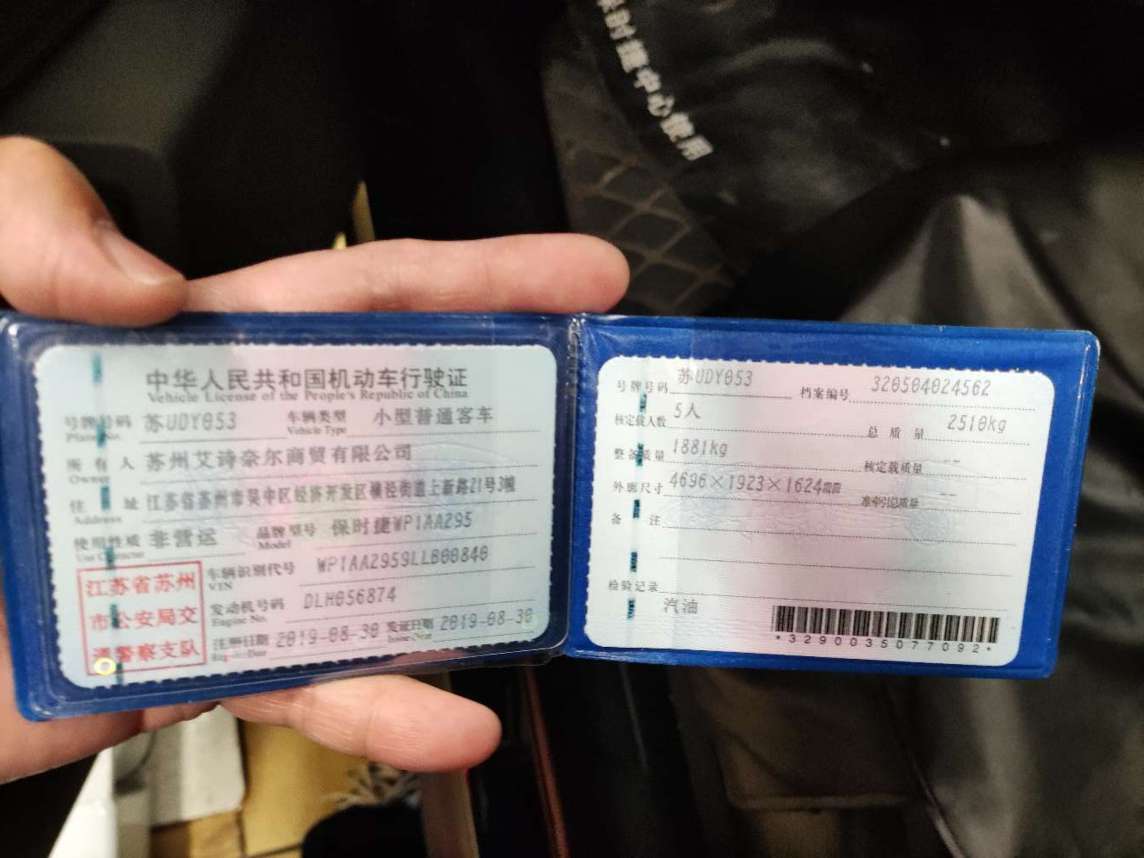 保时捷中心使用
中华人民共和国机动车行驶证
Vehicle License of the People's Republic of China
号牌号码 苏UDY053 车辆类型 小型普通客车
Plate No. Vehicle Type
所有人 苏州艾诗奈尔商贸有限公司
Owner
住址 江苏省苏州市吴中区经济开发区横泾街道上新路21号3幢
Address
使用性质 非营运 品牌型号 保时捷WP1AA295
Use Character Model
车辆识别代号 WP1AA2959LLB00840
VIN
发动机号码 DLH056874
Engine No.
注册日期 2019-08-30 发证日期 2019-08-30
江苏省苏州
市公安局交
通警察支队
号牌号码 苏UDY053 档案编号 320504024562
核定载人数 5人 总质量 2510kg
整备质量 1881kg 核定载质量 --
外廓尺寸 4696×1923×1624mm 准牵引总质量 --
备注
检验记录
汽油
*3290035077092*